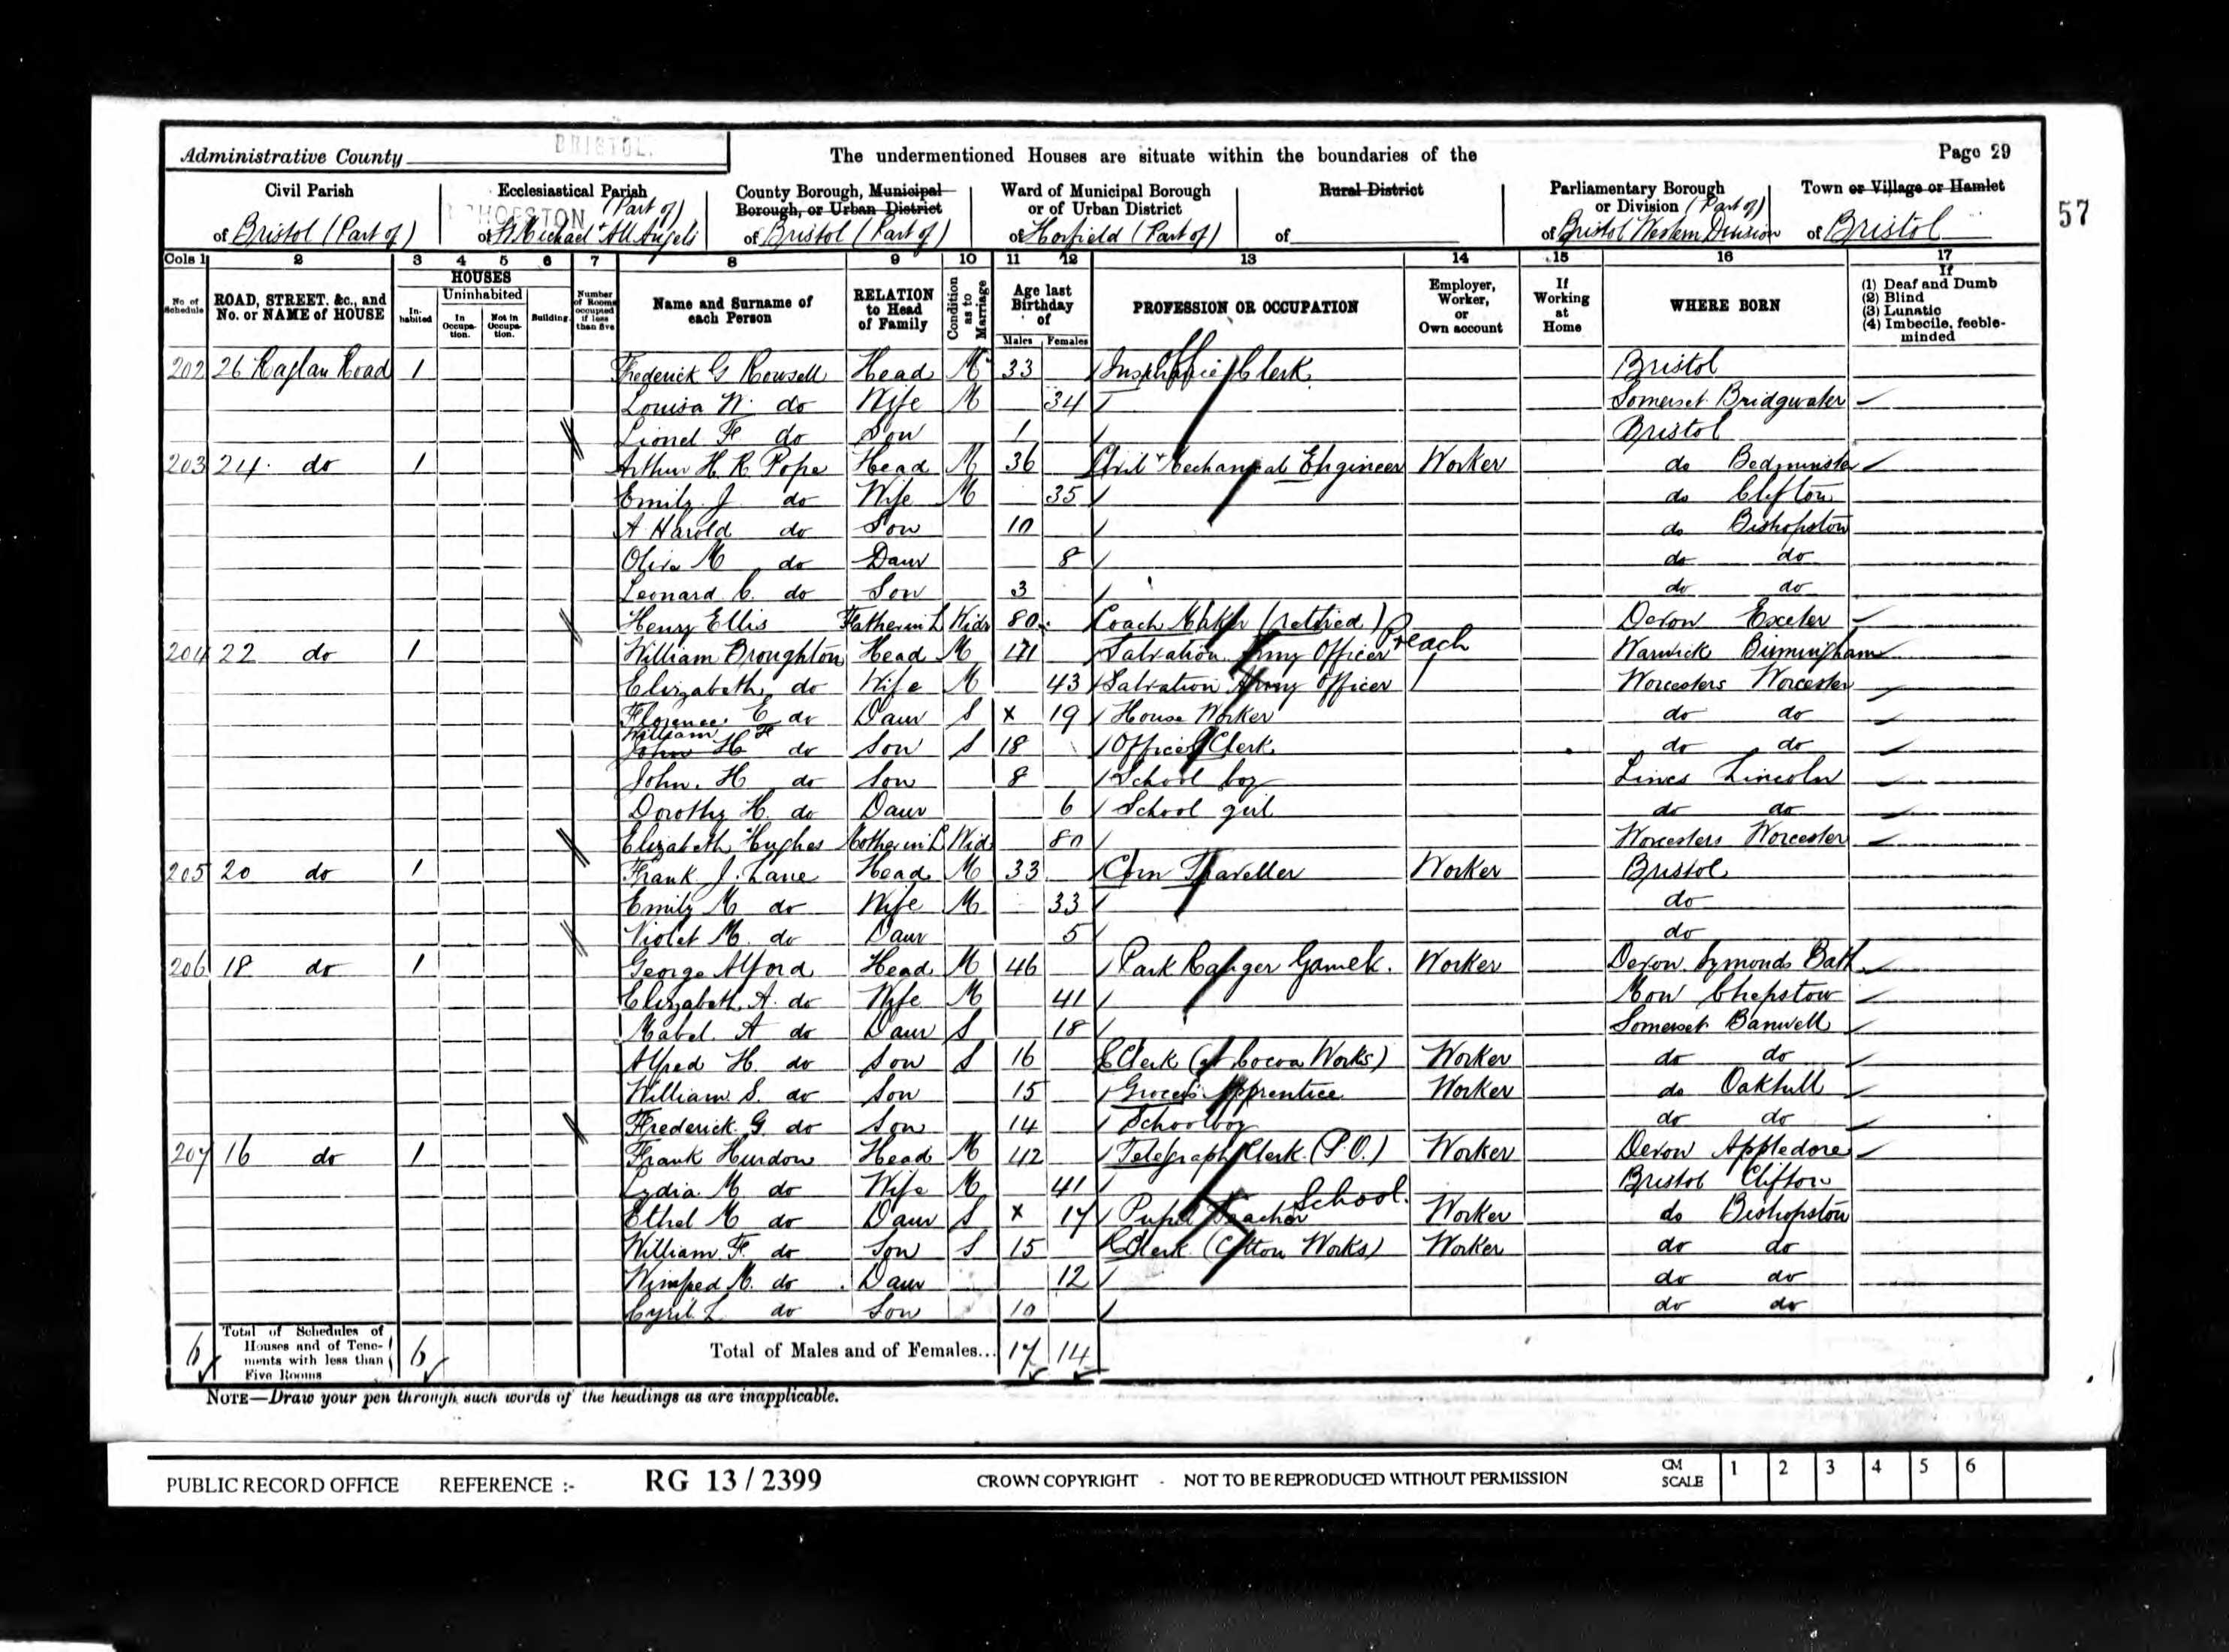 Administrative County BRISTOL. The undermentioned Houses are situate within the boundaries of the Page 29
Civil Parish Ecclesiastical Parish County Borough, Municipal Borough, or Urban District Ward of Municipal Borough or of Urban District Rural District Parliamentary Borough or Division (Part of) Town or Village or Hamlet
of Bristol (Part of) of St Michael & All Angels (Part of) of Bristol (Part of) of Horfield (Part of) of of Bristol Western Division of Bristol 57
Cols 1 2 3 4 5 6 7 8 9 10 11 12 13 14 15 16 17
No of Schedule ROAD, STREET, &c., and No. or NAME of HOUSE HOUSES Inhabited Uninhabited In Occupation. Not in Occupation. Building. Number of Rooms occupied if less than five Name and Surname of each Person RELATION to Head of Family Condition as to Marriage Age last Birthday of Males Females PROFESSION OR OCCUPATION Employer, Worker, or Own account If Working at Home WHERE BORN If (1) Deaf and Dumb (2) Blind (3) Lunatic (4) Imbecile, feeble-minded
202 26 Raglan Road 1 Frederick G Rowsell Head M 33 Clerk Bristol
Louisa W. do Wife M 34 Somerset Bridgwater
Lionel F do Son 1 Bristol
203 24 do 1 Arthur H. R. Pope Head M 36 Civil & Mechanical Engineer Worker do Bedminster
Emily J do Wife M 35 do Clifton
A Harold do Son 10 do Bishopston
Olive M do Daur 8 do do
Leonard C. do Son 3 do do
Henry Ellis Father in L Widr 80 Coach Maker (retired) Devon Exeter
204 22 do 1 William Broughton Head M Salvation Army Officer Preach Warwick Birmingham
Elizabeth do Wife M 43 Salvation Army Officer Worcesters Worcester
Florence E do Daur S X 19 House Worker do do
William F John H do Son S 18 Office Clerk do do
John. H do Son 8 School boy Lincs Lincoln
Dorothy H. do Daur 6 School girl do do
Elizabeth Hughes Mother in L Wid 80 Worcesters Worcester
205 20 do 1 Frank J. Lane Head M 33 Corn Traveller Worker Bristol
Emily M do Wife M 33 do
Violet M. do Daur 5 do
206 18 do 1 George Alford Head M 46 Park Ranger Gamek. Worker Devon Symonds Bath
Elizabeth A. do Wife M 41 Mon Chepstow
Mabel A do Daur S 18 Somerset Banwell
Alfred H. do Son S 16 Clerk (at Cocoa Works) Worker do do
William S. do Son 15 Grocers Apprentice Worker do Oakhill
Frederick G. do Son 14 Schoolboy do do
207 16 do 1 Frank Hurdon Head M 42 Telegraph Clerk (P.O.) Worker Devon Appledore
Lydia M do Wife M 41 Bristol Clifton
Ethel M do Daur S X 17 Pupil Teacher School. Worker do Bishopston
William F. do Son S 15 Clerk (Cotton Works) Worker do do
Winifred M. do Daur 12 do do
Cyril L do Son 10 do do
6 Total of Schedules of Houses and of Tenements with less than Five Rooms 6 Total of Males and of Females... 17 14
NOTE—Draw your pen through such words of the headings as are inapplicable.
PUBLIC RECORD OFFICE REFERENCE :- RG 13 / 2399 CROWN COPYRIGHT - NOT TO BE REPRODUCED WITHOUT PERMISSION CM SCALE 1 2 3 4 5 6